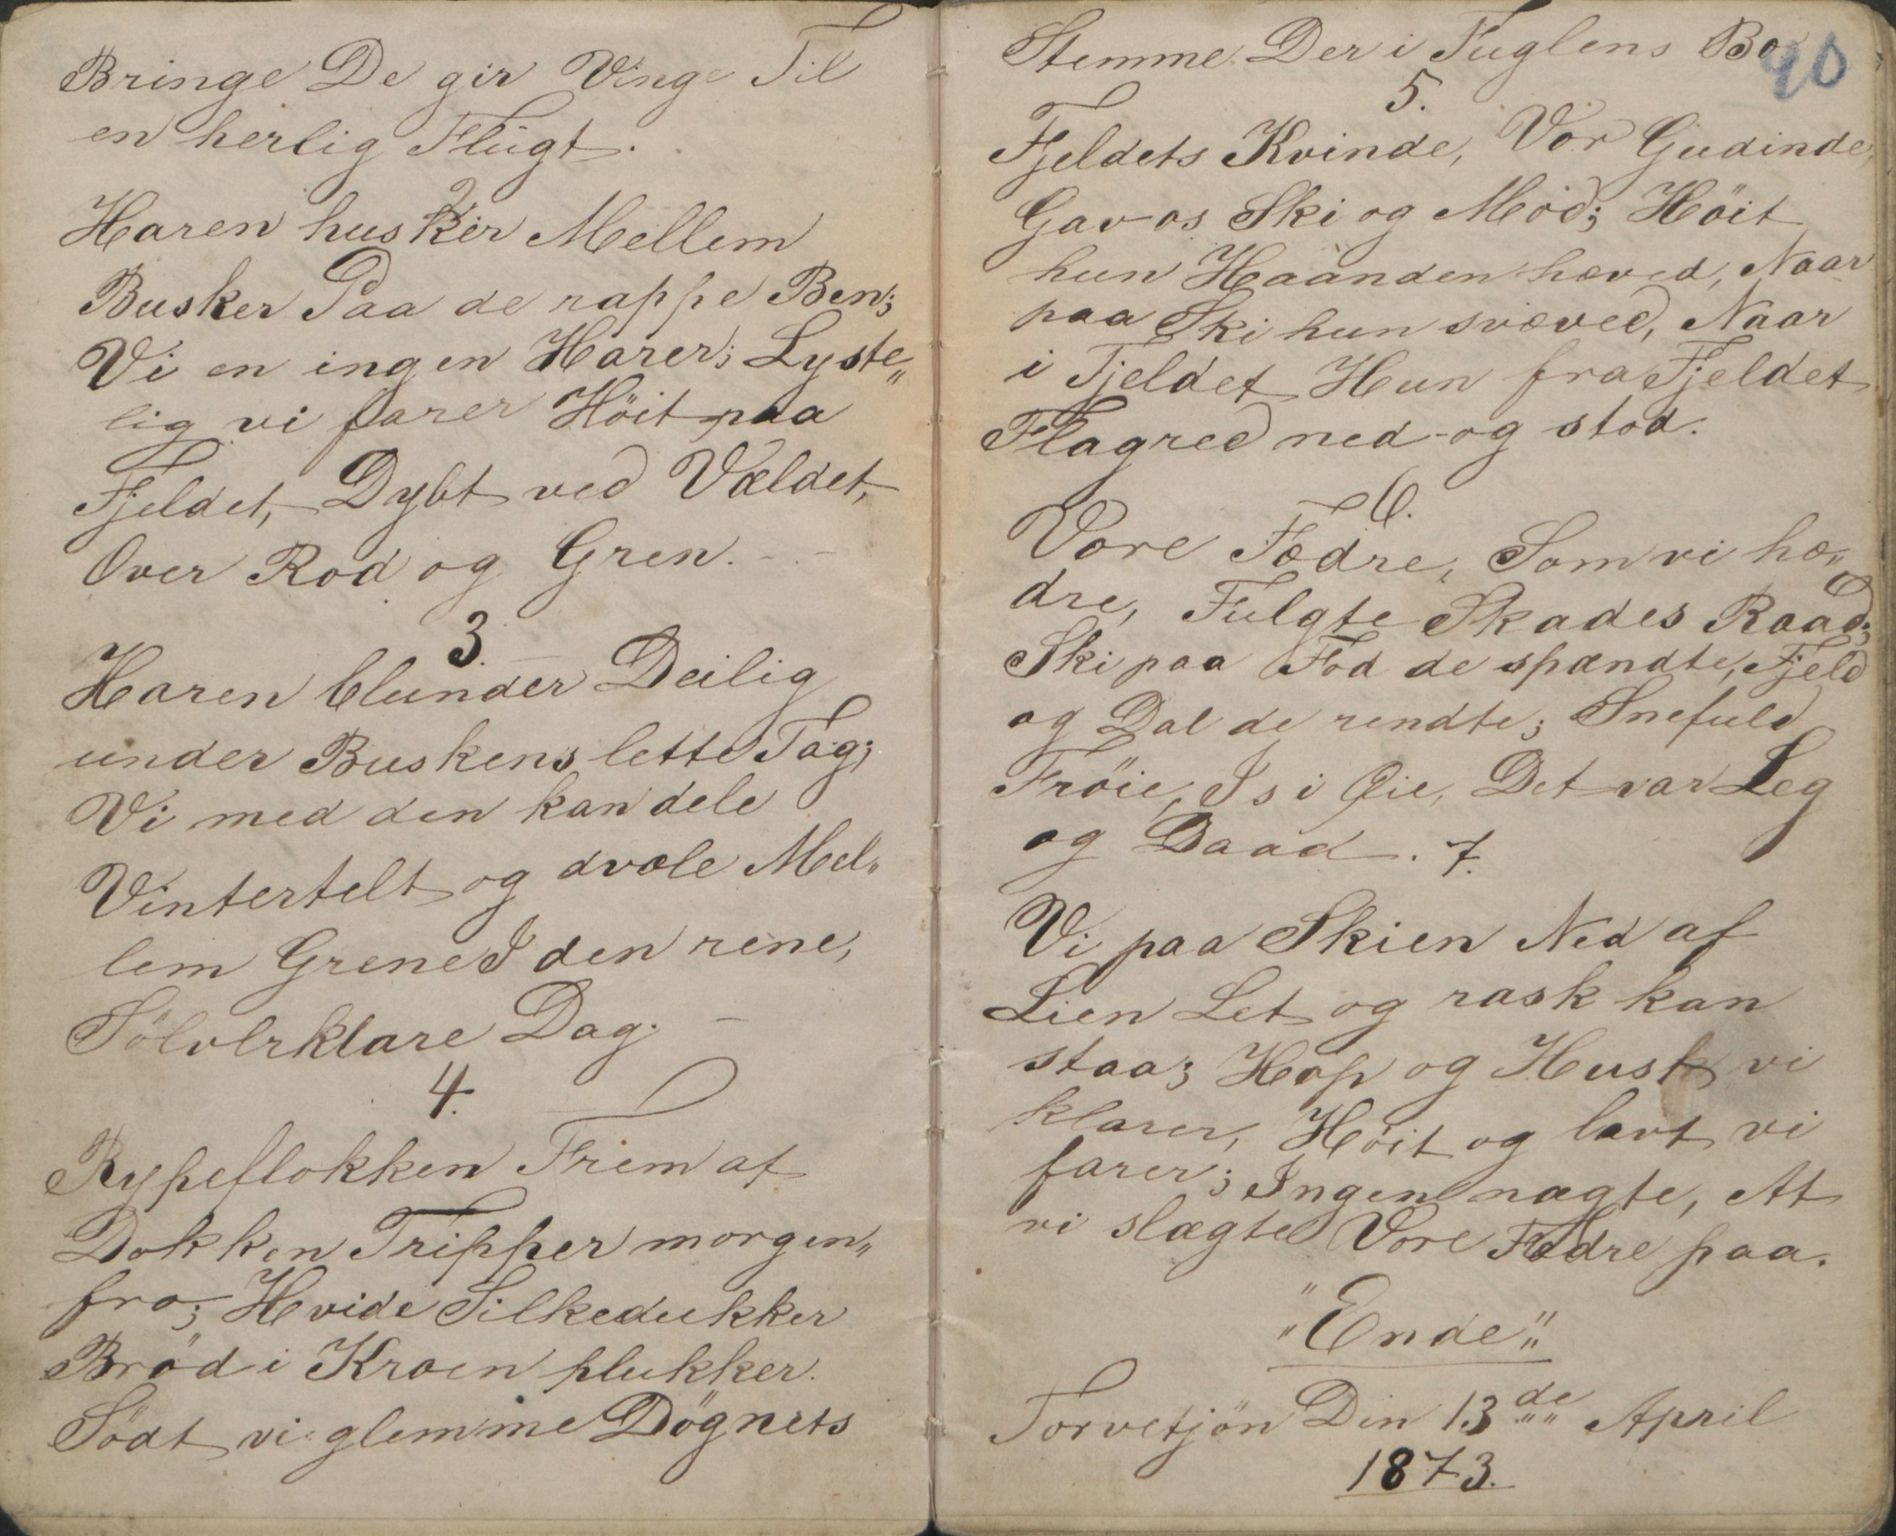 Bringe De gir Vinge Til
en herlig Flugt.
2
Haren husker Mellem
Busker Paa de rappe Ben;
Vi en ingen Harer; Lyste„
lig vi farer Höit paa
Fjeldet, Dybt ved Vældet,
Over Rod og Gren.
3.
Haren blunder Deilig
under Buskens lette Tag;
Vi med den kan dele
Vintertelt og dvæle Mel„
lem Grene I den rene,
Sölvlrklare Dag.
4.
Rypeflokken Frem af
Dokken Tripper morgen„
fro; Hvide Silkedukker
Bröd i Kroen plukker.
Södt vi glemme Dögnets
Stemme Der i Fuglens Bo
40
5.
Fjeldets Kvinde, Vor Gudinde,
Gav os Ski og Mod; Höit
hun Haanden hæved, Naar
paa Ski hun svæved, Naar
i Fjeldet Hun fra Fjeldet
Flagred ned og stod.
6.
Vore Fædre, Som vi hæ„
dre, Fulgte Skades Raad;
Ski paa Fod de spændte, Fjeld
og Dal de rendte; Snefuld
Tröie, Is i Øie, Det var Leg
og Daad. 7.
Vi paa Skien Ned af
Lien Let og rask kan
staa; Hop og Husk vi
klarer, Höit og lavt vi
farer; Ingen nægte, At
vi slægte Vore Fædre paa.
„Ende„
Torvetjön Den 13de April
1873.